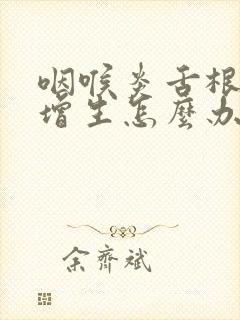 咽喉炎舌根
增生怎麼办
余齊斌